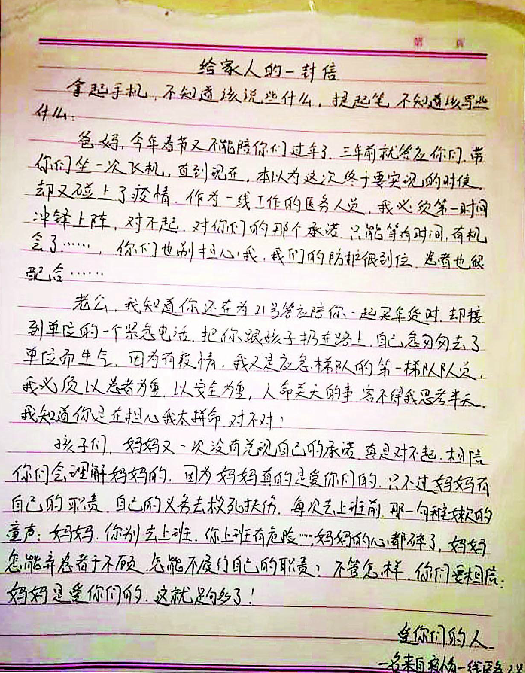 第 页
给家人的一封信
拿起手机,不知道该说些什么,提起笔,不知道该写些
什么.
爸妈,今年春节又不能陪你们过年了,三年前就答应你们,带
你们坐一次飞机,直到现在,本以为这次终于要实现的时候,
却又碰上了疫情,作为一线工作的医务人员,我必须第一时间
冲锋上阵,对不起,对你们的那个承诺,只能等有时间,有机
会了……,你们也别担心我,我们的防护很到位,患者也很
配合……
老公,我知道你还在为21号答应陪你一起买年货时,却接
到单位的一个紧急电话,把你跟孩子扔在路上,自己急匆匆去了
单位而生气,因为有疫情,我又是应急梯队的第一梯队队员,
我必须以患者为重,以安全为重,人命关天的事,容不得我思考半天.
我知道你是在担心我太拼命,对不对?
孩子们,妈妈又一次没有兑现自己的承诺,真是对不起,相信
你们会理解妈妈的,因为妈妈真的是爱你们的,只不过妈妈有
自己的职责,自己的义务去救死扶伤,每次去上班前,那一句稚嫩的
童声:妈妈,你别去上班,你上班有危险……妈妈的心都碎了,妈妈
怎能弃患者于不顾,怎能不履行自己的职责;不管怎样,你们要相信:
妈妈是爱你们的,这就足够了!
爱你们的人
一名来自 一线医务